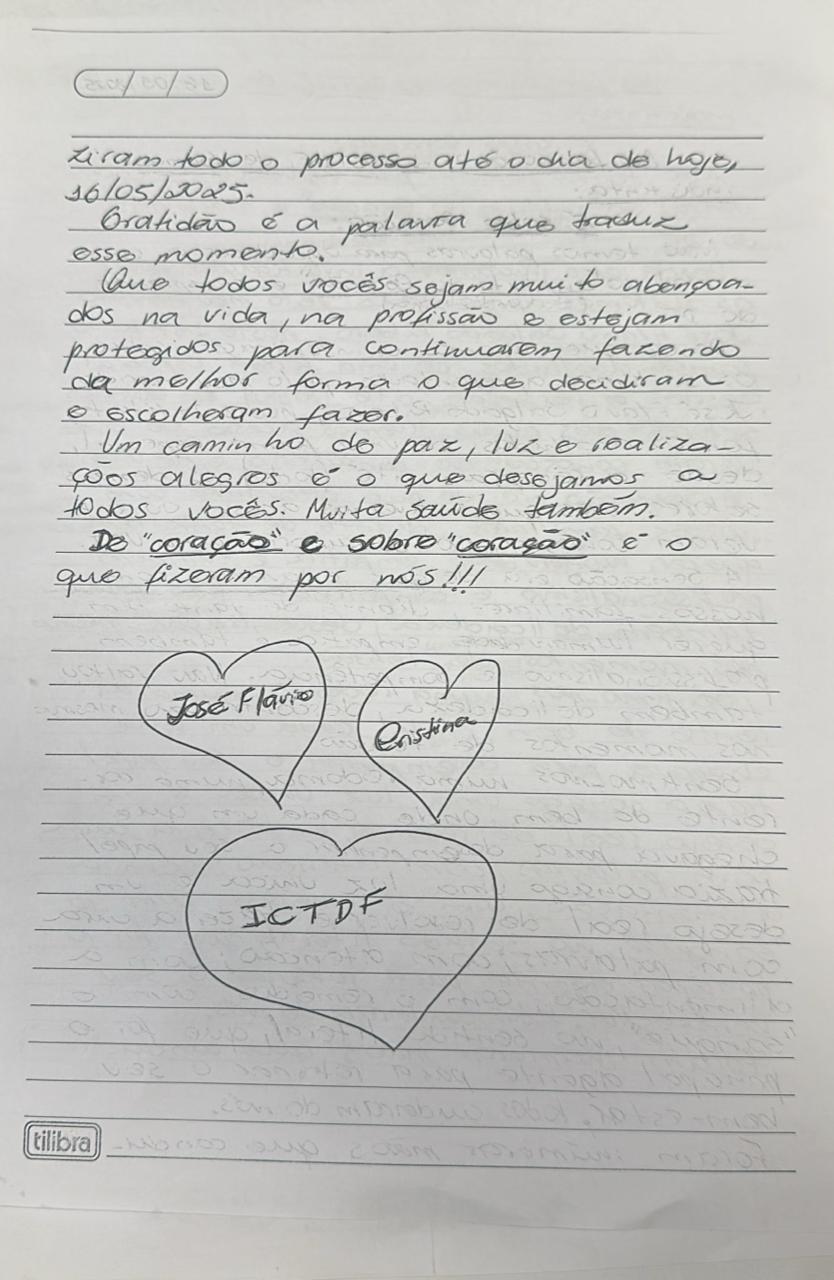 ziram todo o processo até o dia de hoje,
16/05/2025.
Gratidão é a palavra que traduz
esse momento.
Que todos vocês sejam muito abençoa-
dos na vida, na profissão e estejam
protegidos para continuarem fazendo
da melhor forma o que decidiram
e escolheram fazer.
Um caminho de paz, luz e realiza-
ções alegres é o que desejamos a
todos vocês. Muita saúde também.
De "coração" e sobre "coração" é o
que fizeram por nós!!!
José Flávio
Cristina
ICTDF
tilibra